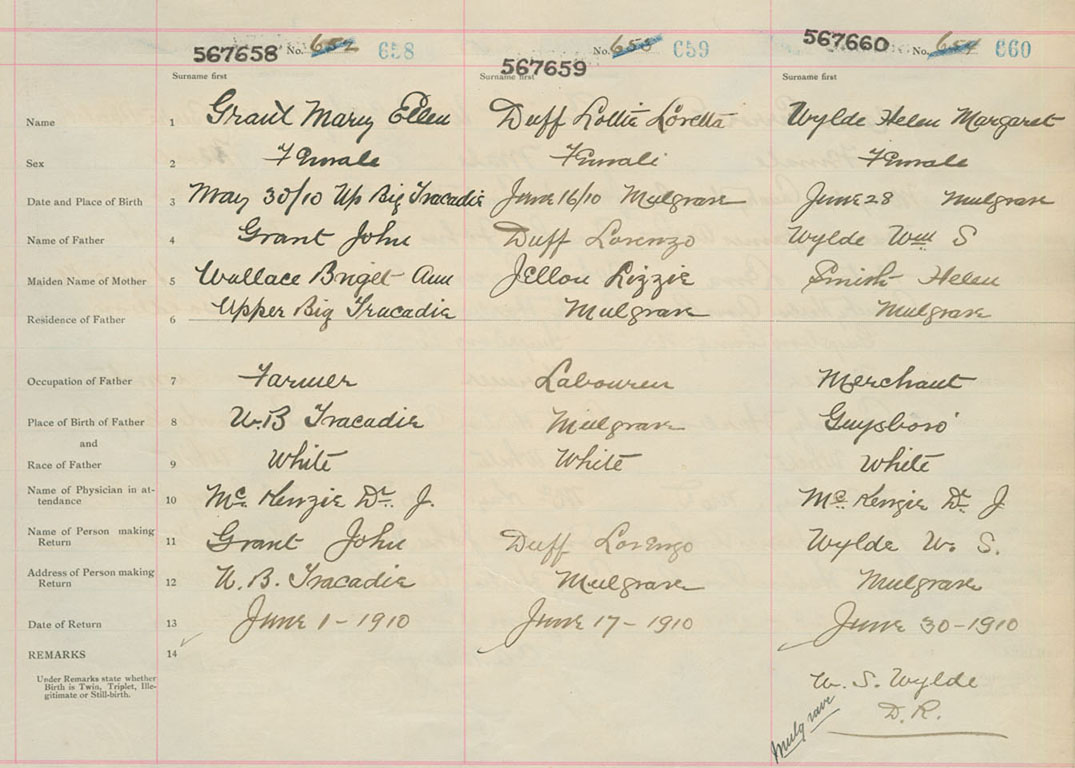 567658 No. 652 658
567659 No. 653 659
567660 No. 654 660
Surname first Surname first Surname first
Name 1 Grant Mary Ellen Duff Lottie Loretta Wylde Helen Margaret
Sex 2 Female Female Female
Date and Place of Birth 3 May 30/10 Up Big Tracadie June 16/10 Mulgrave June 28 Mulgrave
Name of Father 4 Grant John Duff Lorenzo Wylde Wm S
Maiden Name of Mother 5 Wallace Briget Ann Lizzie Smith Helen
Residence of Father 6 Upper Big Tracadie Mulgrave Mulgrave
Occupation of Father 7 Farmer Labourer Merchant
Place of Birth of Father 8 U.B Tracadie Mulgrave Guysboro
and
Race of Father 9 White White White
Name of Physician in at-
tendance 10 Mc Kenzie Dr. J. Mc Kenzie Dr J
Name of Person making
Return 11 Grant John Duff Lorenzo Wylde W. S.
Address of Person making
Return 12 U. B. Tracadie Mulgrave Mulgrave
Date of Return 13 June 1 - 1910 June 17 - 1910 June 30 - 1910
REMARKS 14
Under Remarks state whether
Birth is Twin, Triplet, Ille-
gitimate or Still-birth.
W. S. Wylde
D. R.
Mulgrave